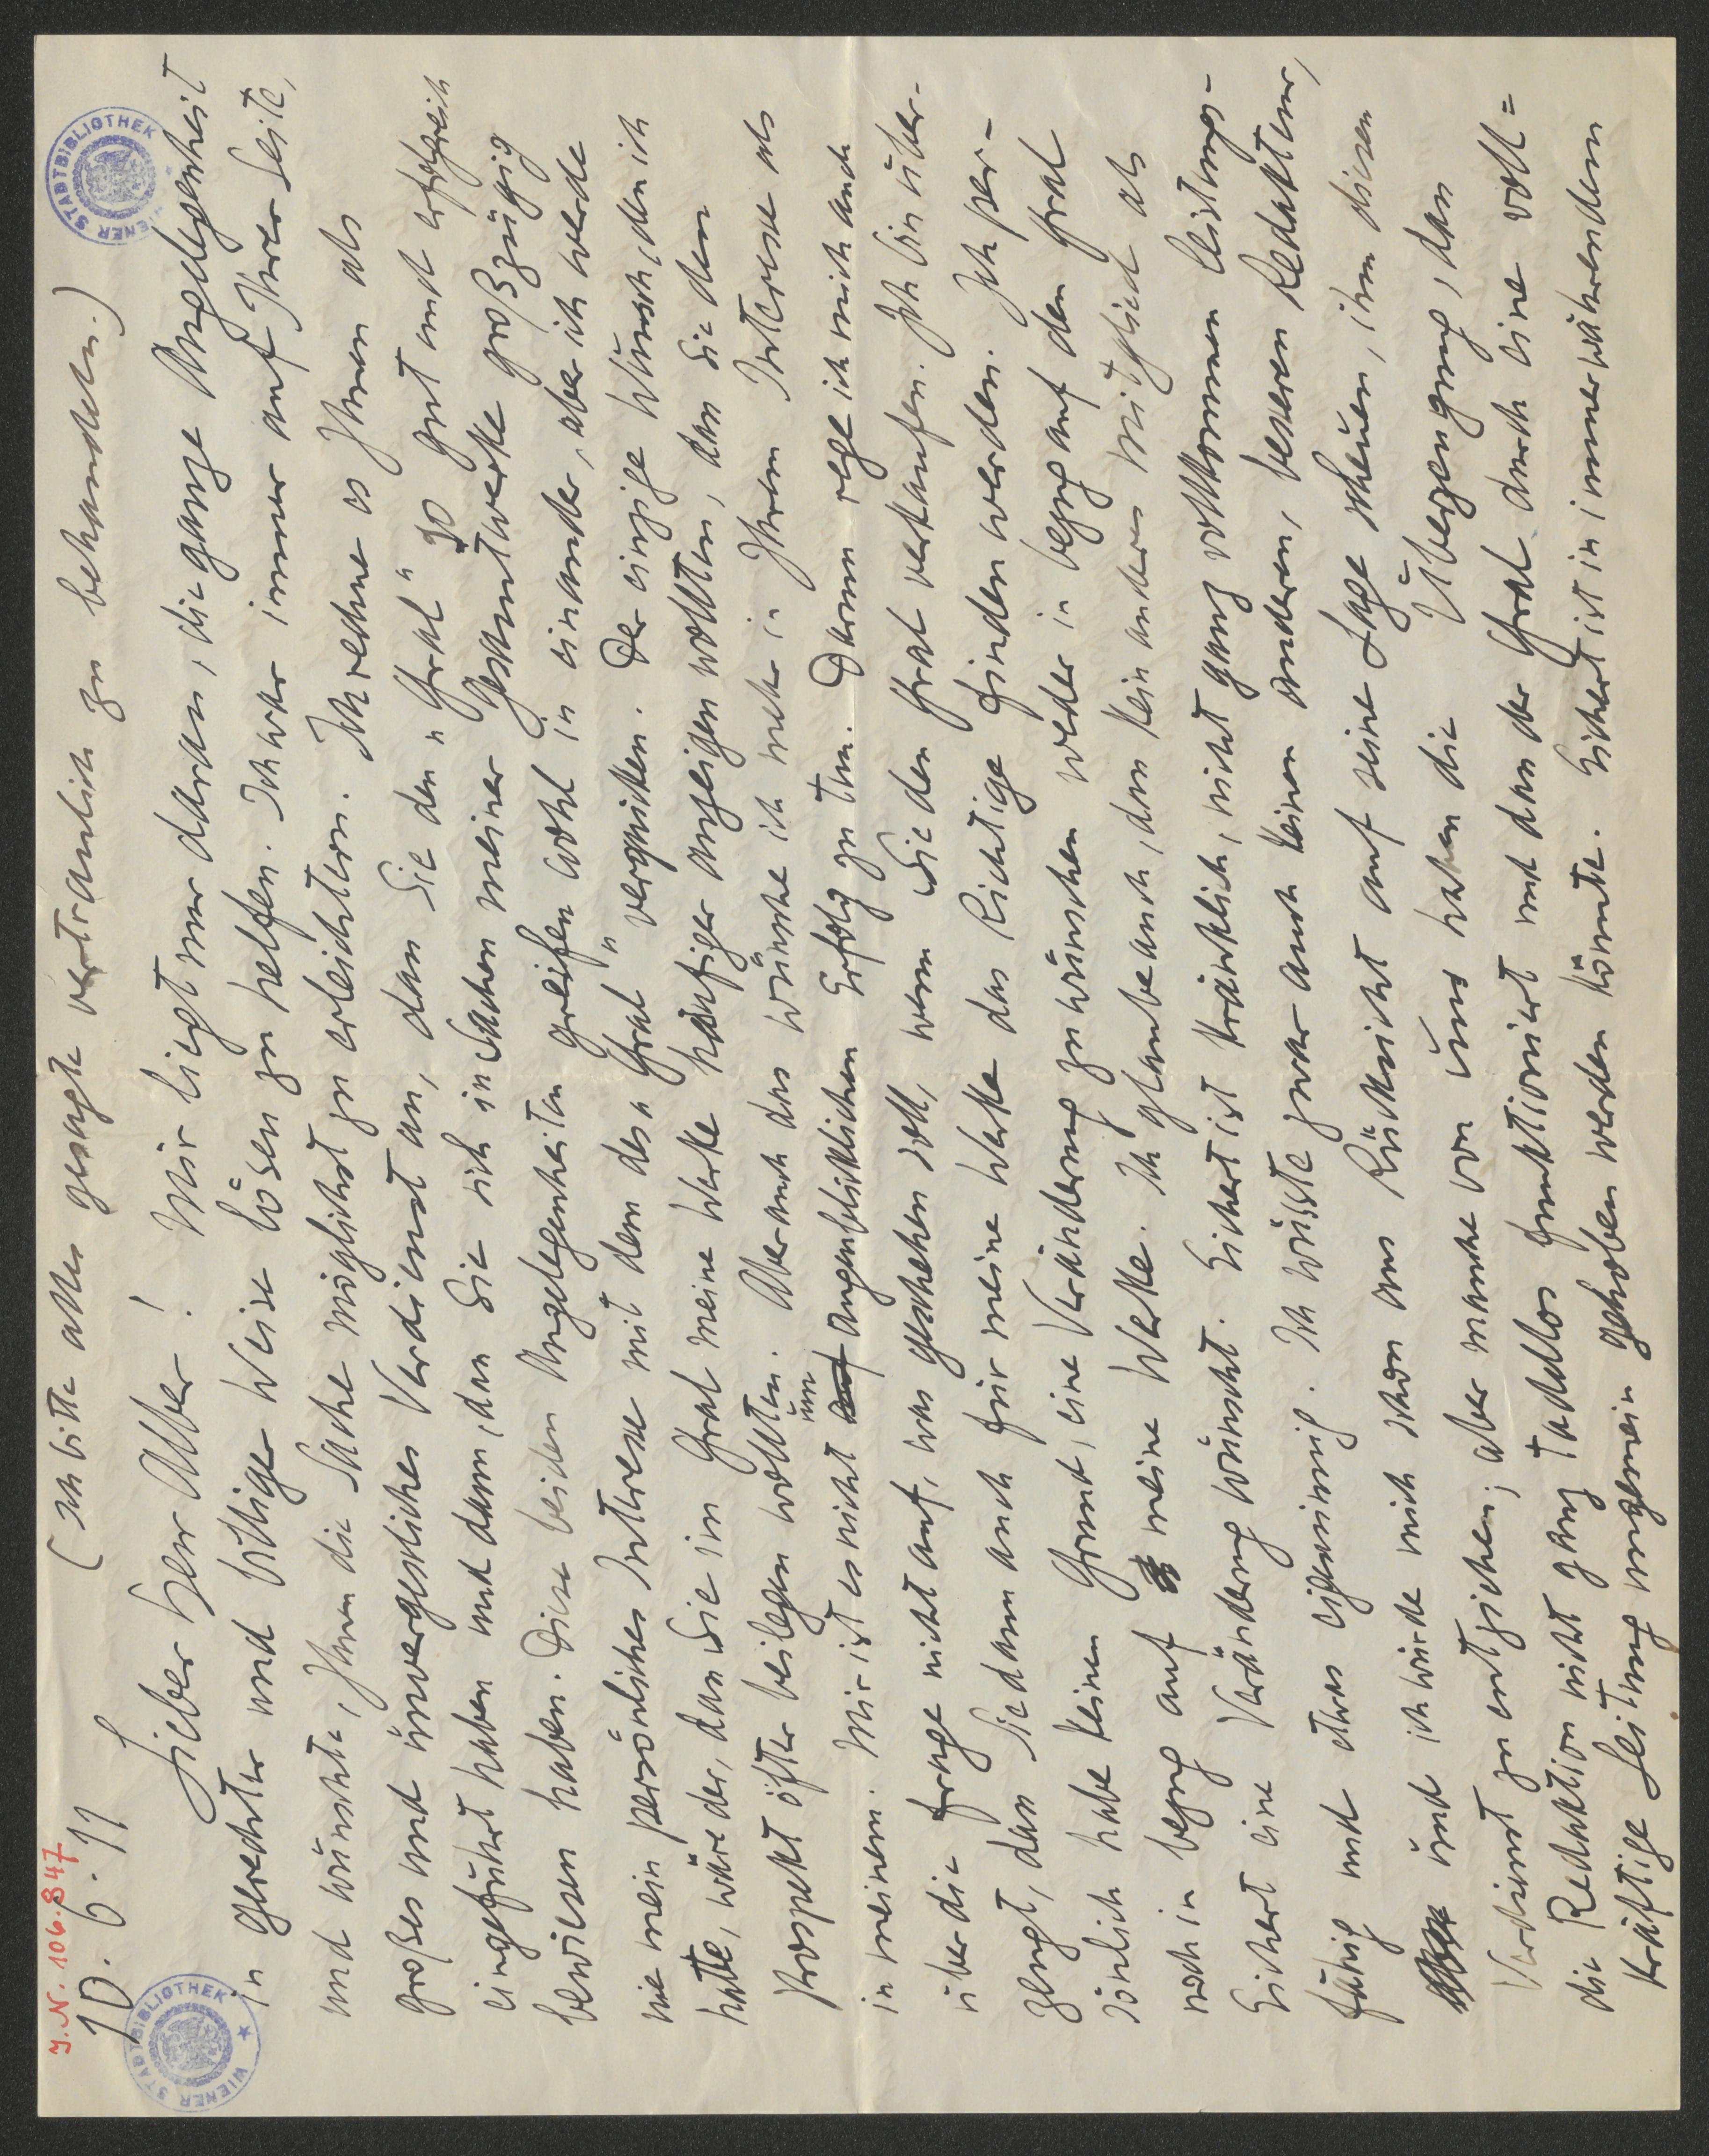 J.N. 106.847
(Ich bitte alles gesagte vertraulich zu behandeln.)
10. 6. 11
Lieber Herr Alber! Mir liegt nur daran, die ganze Angelegenheit
in gerechter und billiger Weise lösen zu helfen. Ich war immer auf Ihrer Seite,
und wünschte, Ihnen die Sache möglichst zu erleichtern. Ich rechne es Ihnen als
großes und unvergesliches Verdienst an, dass Sie den "Gral" so gut und erfolgreich
eingeführt haben und dann, dass Sie sich in Sachen meiner Gesamtwerke großzügig
bewiesen haben. Diese beiden Angelegenheiten greifen wohl in einander, aber ich werde
nie mein persönliches Interesse mit dem des "Gral" verquicken. Der einzige Wunsch, den ich
hätte, wäre der, dass Sie im Gral meine Werke häufiger anzeigen wollten, dass Sie den
Prospekt öfter beilegen wollten. Aber auch das wünsche ich mehr in Ihrem Interesse als
in meinem. Mir ist es nicht um augenblicklichen Erfolg zu tun. Darum rege ich mich auch
über die Frage nicht auf, was geschehen soll, wenn Sie den Gral verkaufen. Ich bin über-
zeugt, dass Sie dann auch für meine Werke das Richtige finden werden. Ich per-
sönlich habe keinen Grund, eine Veränderung zu wünschen weder in bezug auf den Gral
noch in bezug auf meine Werke. Ich glaube auch, dass kein anderes Mitglied als
Eichert eine Veränderung wünscht. Eichert ist kränklich, nicht ganz vollkommen leistungs-
fähig und etwas eigensinnig. Ich wüsste zwar auch keinen anderen, besseren Redakteur,
und ich würde mich schon aus Rücksicht auf seine Lage scheuen, ihm diesen
Verdienst zu entziehen; aber manche von uns haben die Überzeugung, dass
die Redaktion nicht ganz tadellos funktioniert und dass der Gral durch eine voll=
kräftige Leitung ungemein gehoben werden könnte. Eichert ist in immerwährendem
WIENER STADTBIBLIOTHEK
WIENER STADTBIBLIOTHEK